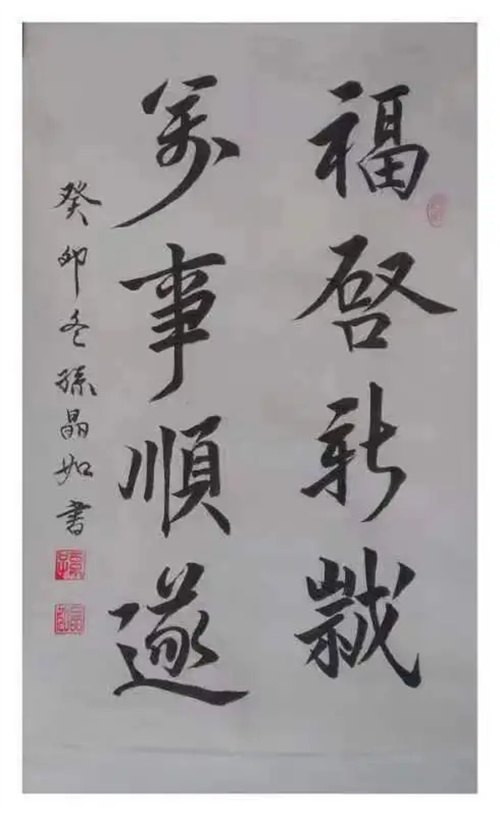 福啓新歲
萬事順遂
癸卯冬孫晶如書